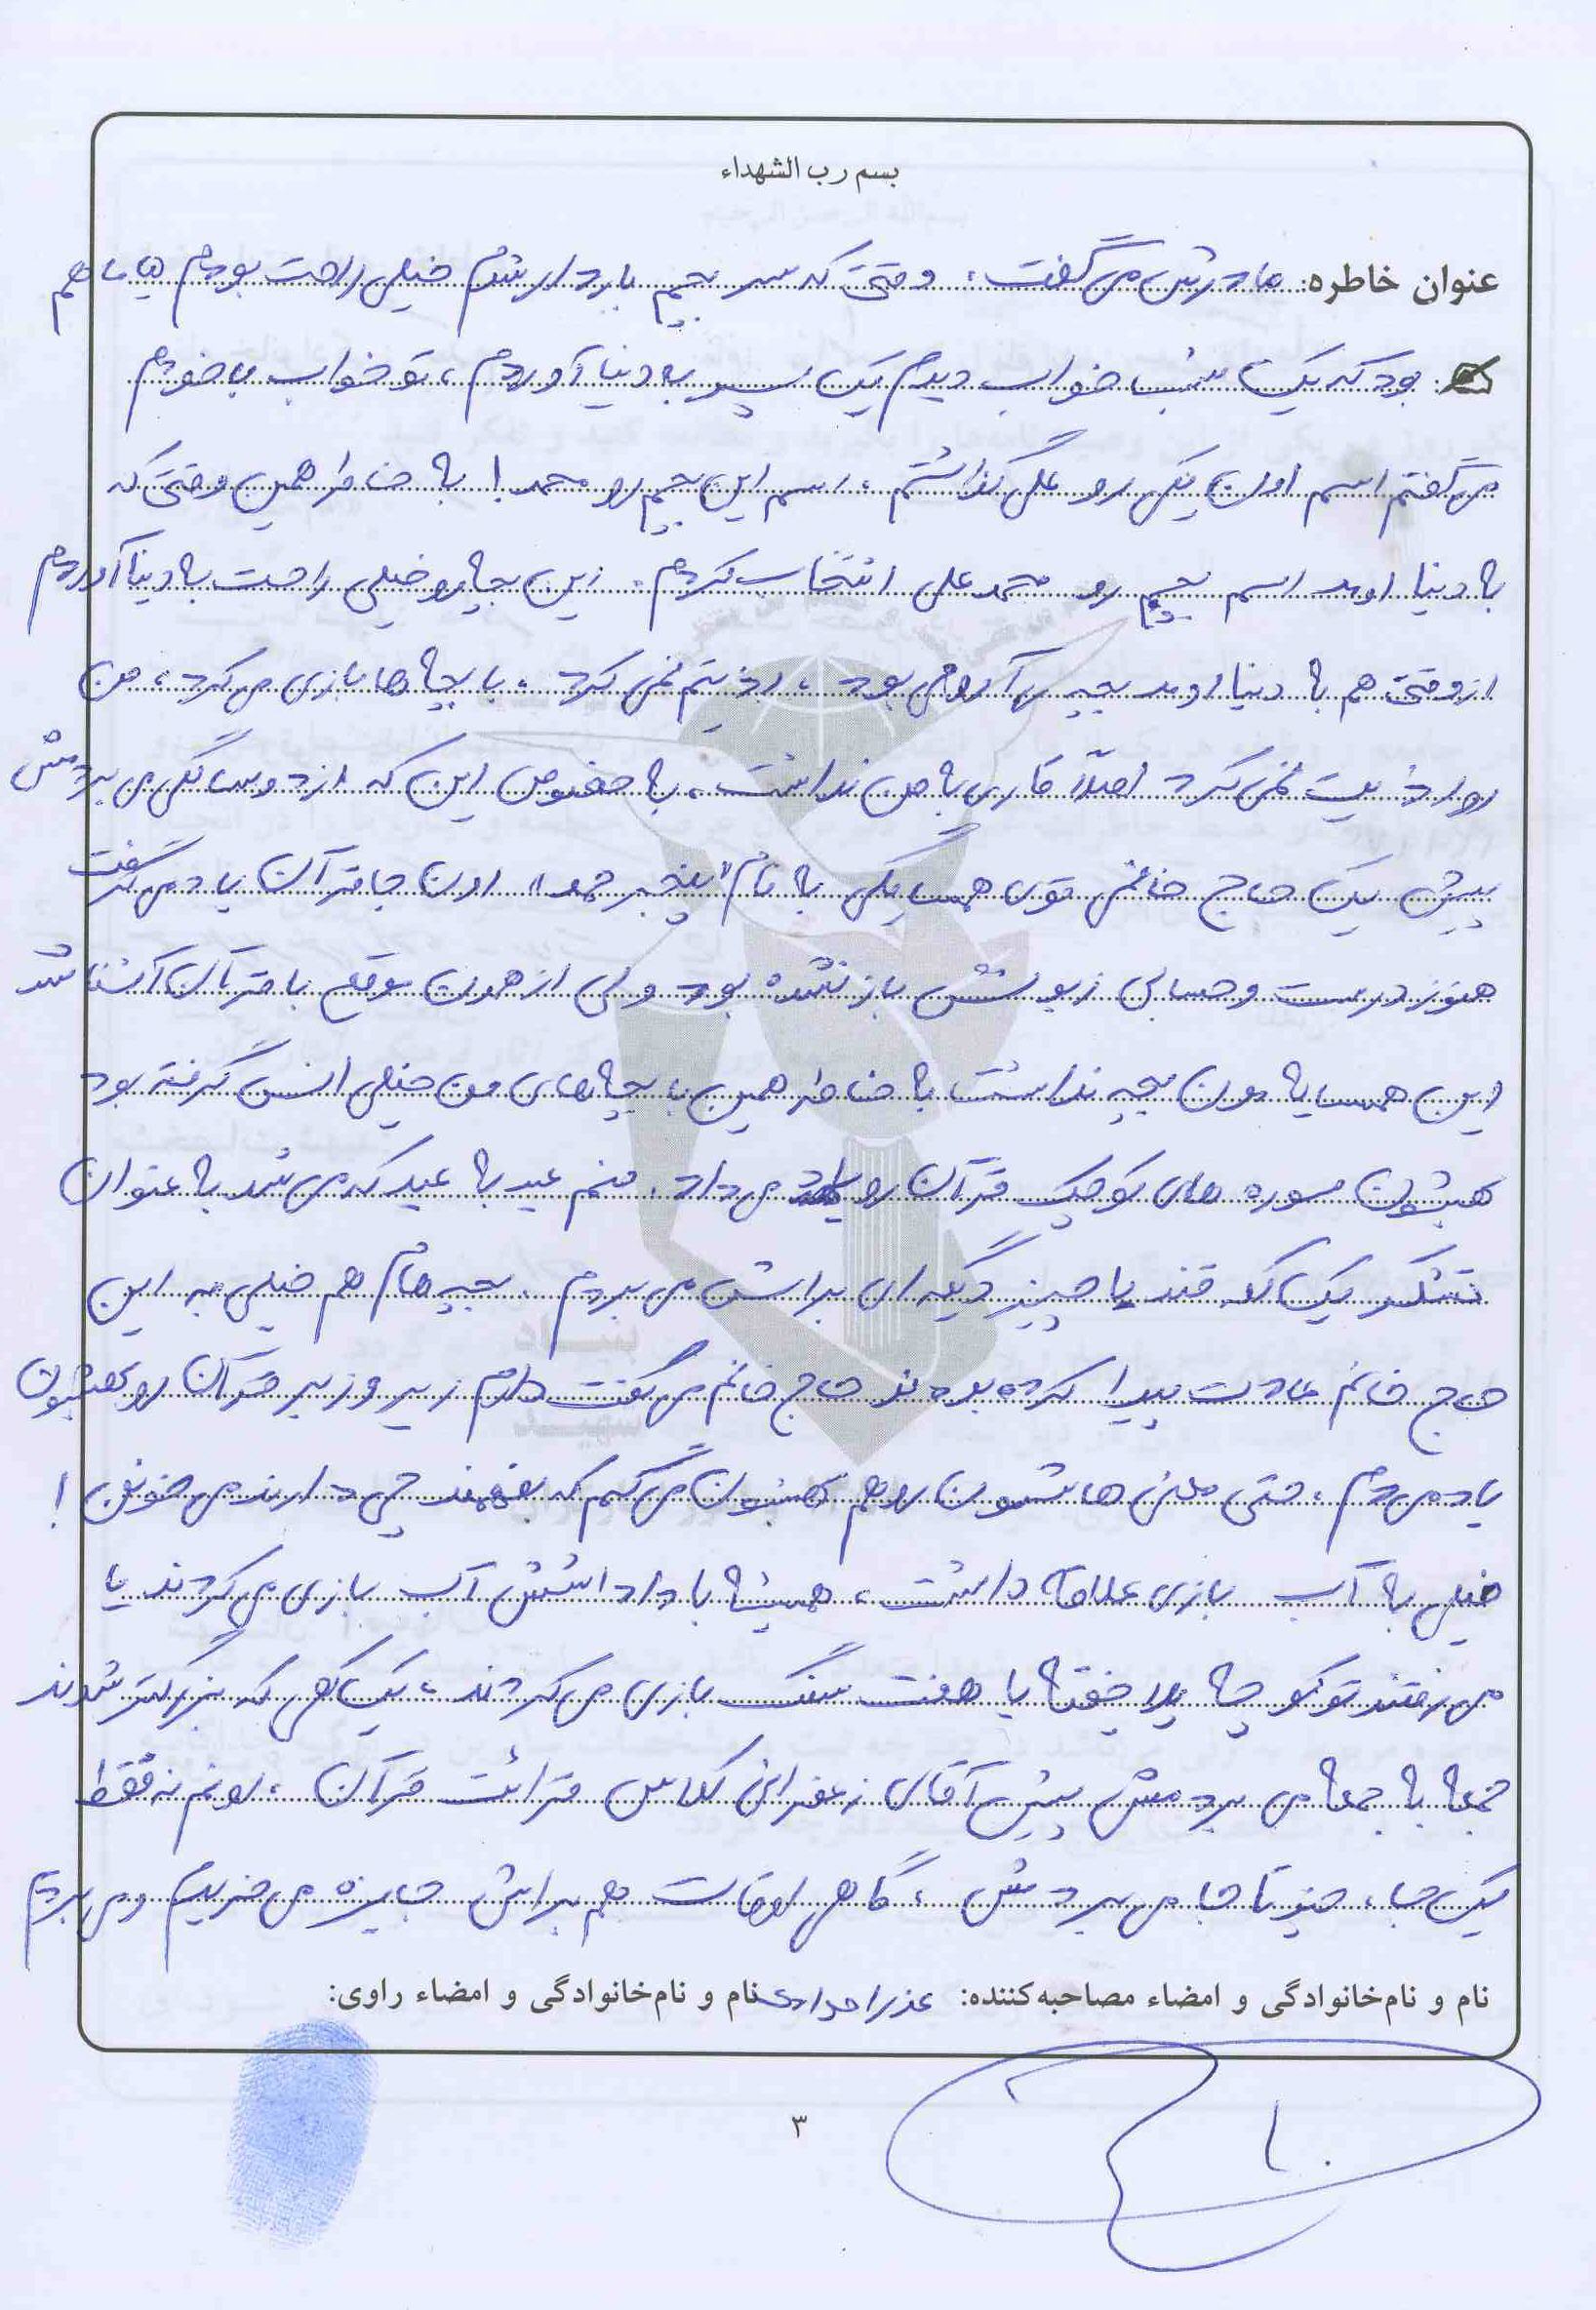 بسم رب الشهداء
عنوان خاطره: مادرش می گفت، وقتی که سر بچم باردار شدم خیلی راحت بودم ماهم
بود که یک شب خواب دیدم یک پسر به دنیا آوردم، تو خواب با خودم
می گفتم اسم اون یکی رو علی گذاشتم، اسم این بچم رو محمد! با خاطر همین وقتی که
با دنیا اومد اسم بچم رو محمد علی انتخاب کردم. این بچا رو خیلی راحت با دنیا آوردم
از وقتی هم با دنیا اومد بچه آرومی بود، اذیتم نمی کرد، با بچا ها بازی می کرد، من
رو اذیت نمی کرد اصلاً کاری با من نداشت، با خصوص این که از دو سالگی می بردمش
پیش یک حاج خانمی توی همسایگی با نام " اون جا قرآن یاد می گرفت
هنوز درست و حسابی زبونش باز نشده بود ولی از همون موقع با قرآن آشنا شد
این همسایا مون بچه نداشت با خاطر همین با بچا های من خیلی انس گرفته بود
بهشون سوره های کوچیک قرآن رو یاد می داد. منم عید با عید که می شد با عنوان
تشکر یک کله قند یا چیز دیگه ای براش می بردم. بچه هام هم خیلی به این
حاج خانم عادت پیدا کرده بودند حاج خانم می گفت دارم زیر و زبر قرآن رو بهشون
یاد می دم، حتی معنی هاشون رو هم بهشون می گم که بفهمند چی دارند می خونن!
خیلی با آب بازی علاقه داشت، همیشا با داداشش آب بازی می کردند یا
می رفتند تو کوچا پلا خفتا یا هفت سنگ بازی می کردند، یک کمی که بزرگتر شدند
جمعا با جمعا می بردمش پیش آقای زعفرانی کلاس قرائت قرآن، اونم نه فقط
یک جا، چند تا جا می بردمش، گاهی اوقات هم براش جایزه می خریدم و می بردم
نام و نام خانوادگی و امضاء مصاحبه کننده: عذرا مرادی نام و نام خانوادگی و امضاء راوی:
۳